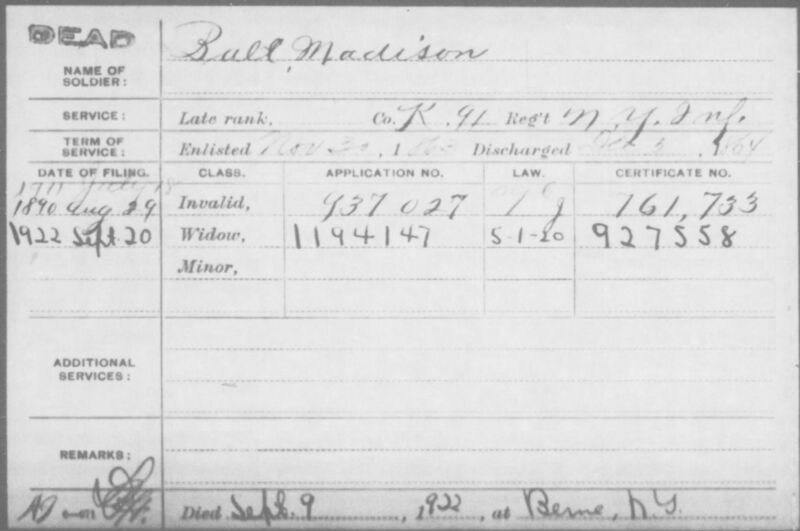 DEAD
Ball, Madison
NAME OF
SOLDIER:
SERVICE: Late rank, Co. K. 91 Reg't N. Y. Inf.
TERM OF
SERVICE: Enlisted Nov 30, 1863 Discharged 3, 1864
DATE OF FILING. CLASS. APPLICATION NO. LAW. CERTIFICATE NO.
1911 July 18
1890 Aug 29 Invalid, 937 027 761,733
1922 Sept. 20 Widow, 1194147 5-1-20 927558
Minor,
ADDITIONAL
SERVICES:
REMARKS:
Died Sept. 9, 1922, at Berne, N.Y.